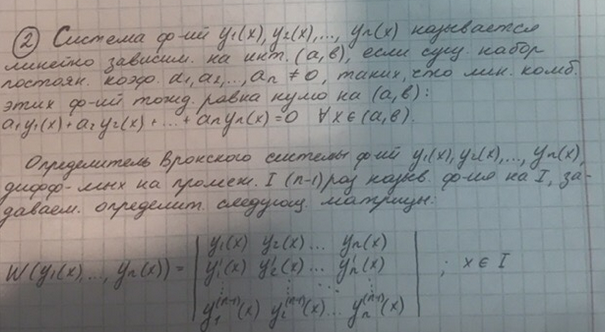 ② Система ф-ий y₁(x), y₂(x), ..., yₙ(x) называется
линейно зависим. на инт. (a, b), если сущ. набор
постоян. коэф. a₁, a₂, ..., aₙ ≠ 0, таких, что лин. комб.
этих ф-ий тожд. равна нулю на (a, b):
a₁y₁(x) + a₂y₂(x) + ... + aₙyₙ(x) = 0 ∀x ∈ (a, b).
Определитель Вронского системы ф-ий y₁(x), y₂(x), ..., yₙ(x),
дифф-мых на промеж. I (n-1) раз назыв. ф-ия на I, за-
даваем. определит. следующ. матрицы:
W(y₁(x), ..., yₙ(x)) = | y₁(x) y₂(x) ... yₙ(x) |
| y₁'(x) y₂'(x) ... yₙ'(x) |
| ⋮ ⋮ ⋱ ⋮ |
| y₁⁽ⁿ⁻¹⁾(x) y₂⁽ⁿ⁻¹⁾(x) ... yₙ⁽ⁿ⁻¹⁾(x) | ; x ∈ I